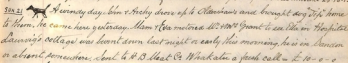 Sun 21 A windy day. Vin & Archy drove up to Harrison's and brought dog Fife home
to them. He came here yesterday. Mam & Eva motored Mrs Grant to see Ella in Hospital
cottage was burnt down last night or early this morning, he is in
or absent somewhere. Sent to R.D. Meat Co Whakatu a fresh calf - £ 10-0-0